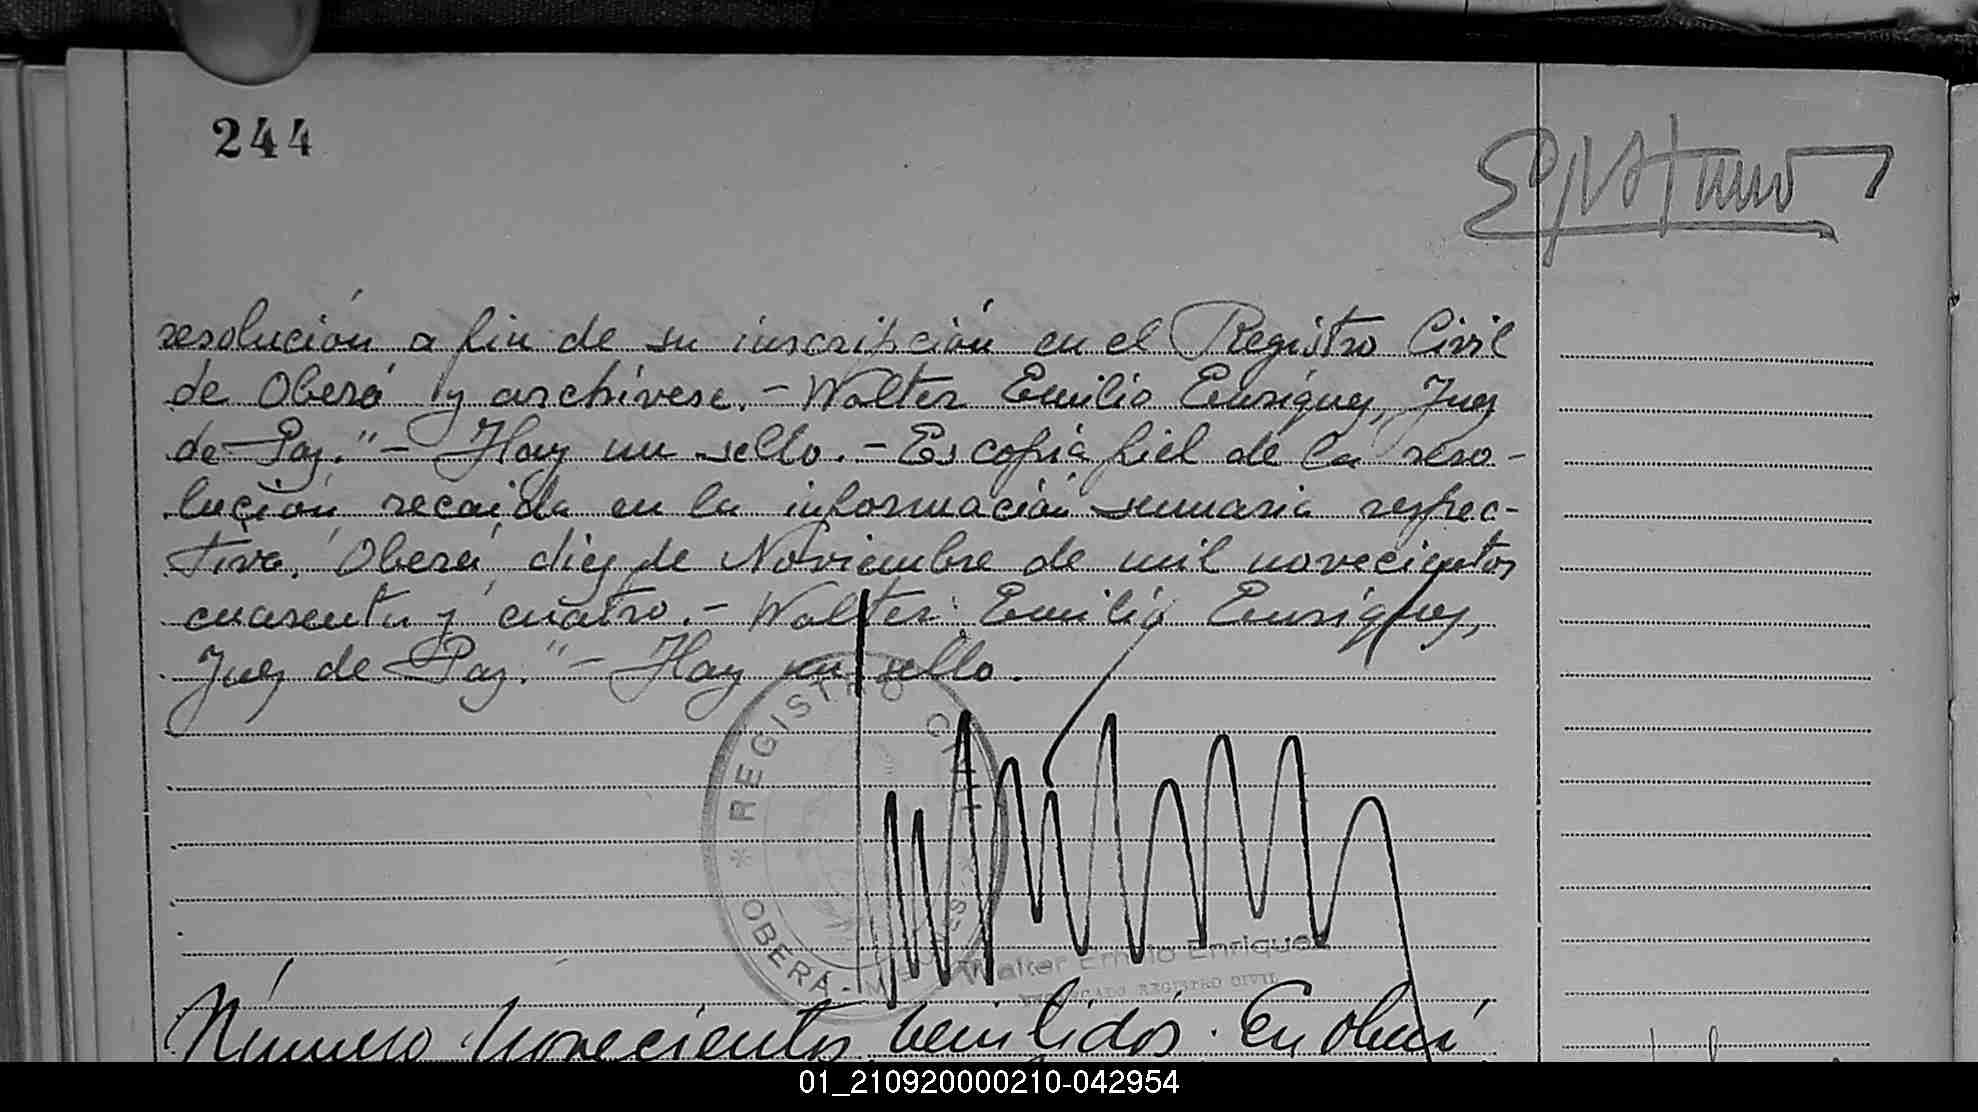 244
resolución a fin de su inscripción en el Registro Civil
de Oberá y archívese. - Walter Emilio Enriquez, Juez
de Paz." - Hay un sello. - Es copia fiel de la reso-
lución recaida en la información sumaria respec-
tiva. Oberá, diez de Noviembre de mil novecientos
cuarenta y cuatro. - Walter Emilio Enriquez,
Juez de Paz." - Hay un sello.
REGISTRO CIVIL
* OBERÁ - MISIONES *
Walter Emilio Enriquez
ENCARGADO REGISTRO CIVIL
Número novecientos veintidós. En Oberá
01_210920000210-042954